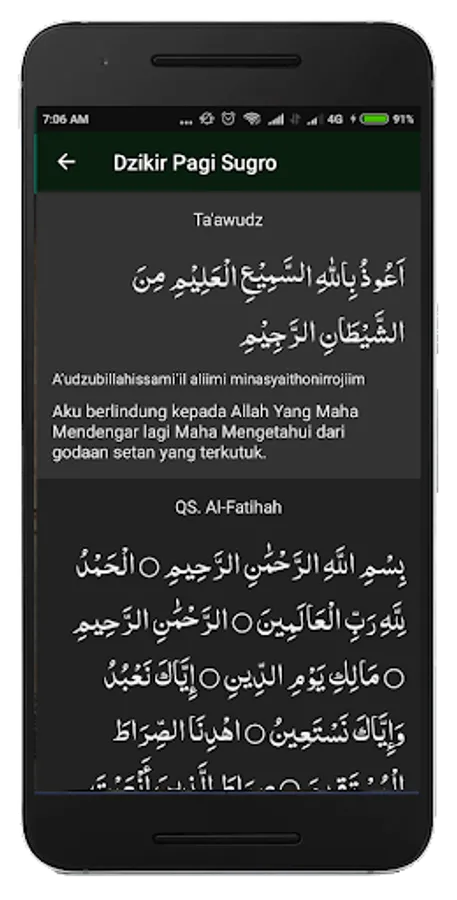 7:06 AM ... 4G 91%
Dzikir Pagi Sugro
Ta'awudz
اَعُوذُ بِاللهِ السَّمِيْعِ الْعَلِيْمِ مِنَ
الشَّيْطَانِ الرَّجِيْمِ
A'udzubillahissami'il aliimi minasyaithonirrojiim
Aku berlindung kepada Allah Yang Maha
Mendengar lagi Maha Mengetahui dari
godaan setan yang terkutuk.
QS. Al-Fatihah
بِسْمِ اللَّهِ الرَّحْمَٰنِ الرَّحِيمِ ○ الْحَمْدُ
لِلَّهِ رَبِّ الْعَالَمِينَ ○ الرَّحْمَٰنِ الرَّحِيمِ
○ مَالِكِ يَوْمِ الدِّينِ ○ إِيَّاكَ نَعْبُدُ
وَإِيَّاكَ نَسْتَعِينُ ○ اهْدِنَا الصِّرَاطَ
الْمُسْتَقِيمَ ○ صِرَاطَ الَّذِينَ أَنْعَمْتَ